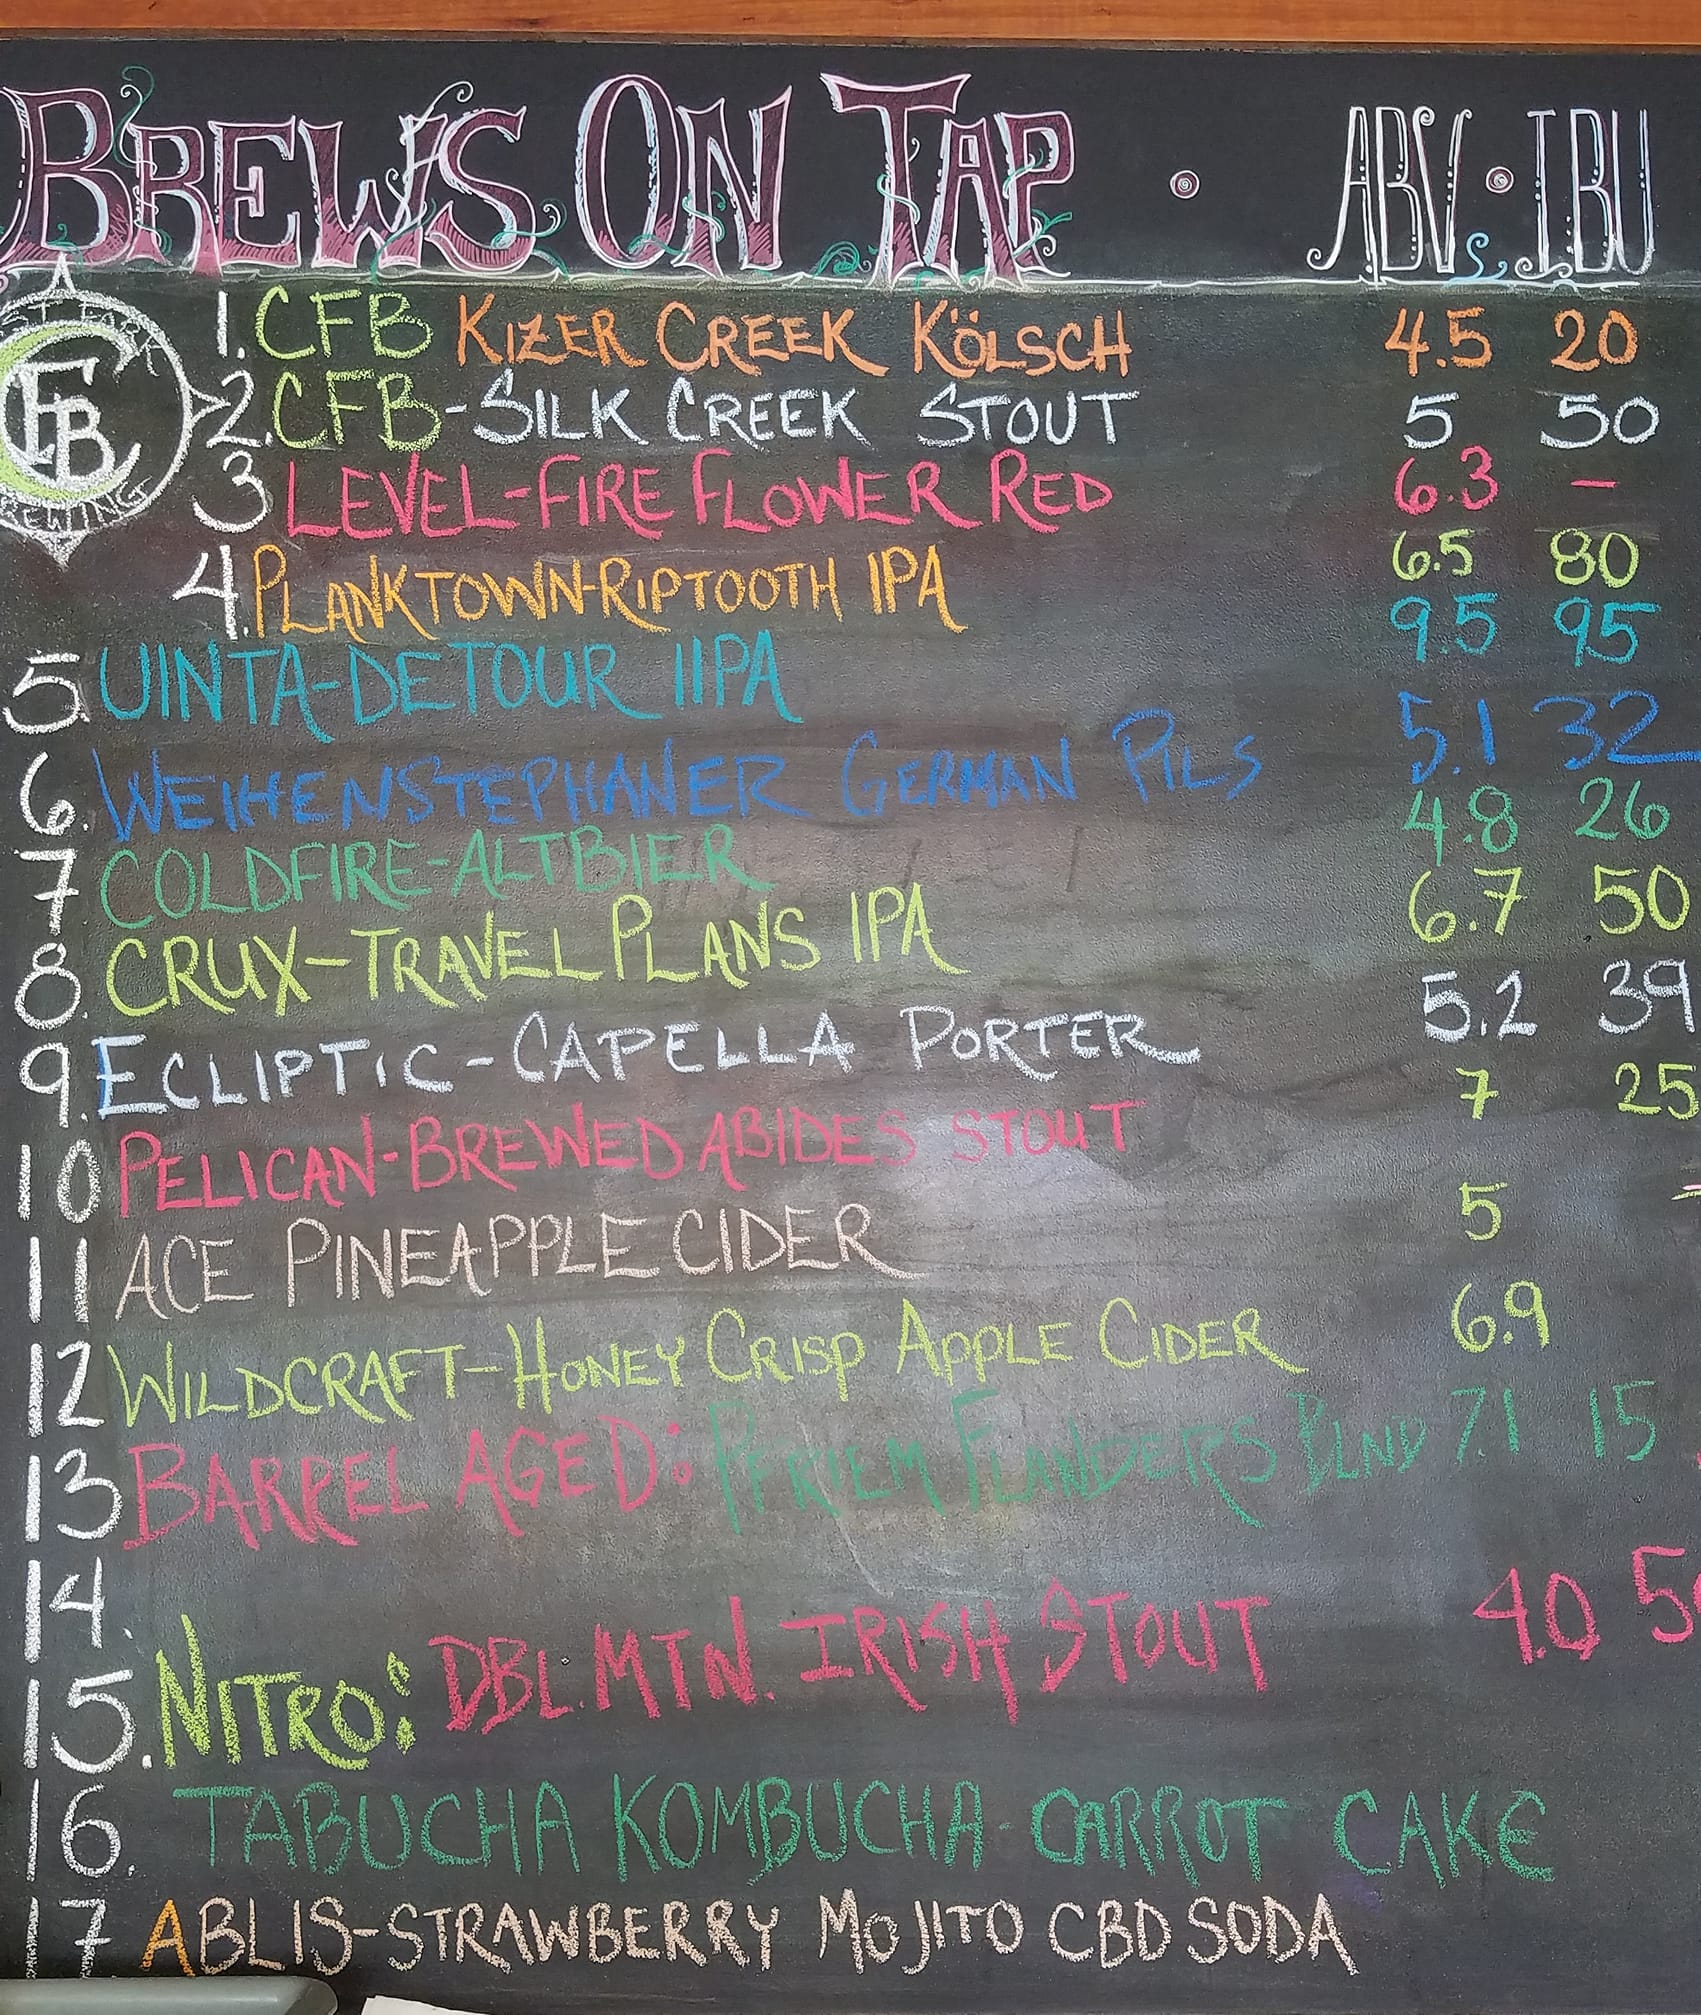 BREWS ON TAP • ABV • IBU
1. CFB KIZER CREEK KÖLSCH 4.5 20
2. CFB-SILK CREEK STOUT 5 50
3 LEVEL-FIRE FLOWER RED 6.3 –
4. PLANKTOWN-RIPTOOTH IPA 6.5 80
5. UINTA-DETOUR IIPA 9.5 95
6. WEIHENSTEPHANER GERMAN PILS 5.1 32
7 COLDFIRE-ALTBIER 4.8 26
8. CRUX-TRAVEL PLANS IPA 6.7 50
9. ECLIPTIC-CAPELLA PORTER 5.2 39
10 PELICAN-BREWED ABIDES STOUT 7 25
11 ACE PINEAPPLE CIDER 5
12 WILDCRAFT-HONEY CRISP APPLE CIDER 6.9
13 BARREL AGED: PFRIEM FLANDERS BLND 7.1 15
14.
15. NITRO: DBL. MTN. IRISH STOUT 4.0
16. TABUCHA KOMBUCHA-CARROT CAKE
17 ABLIS-STRAWBERRY MOJITO CBD SODA
FB
BREWING